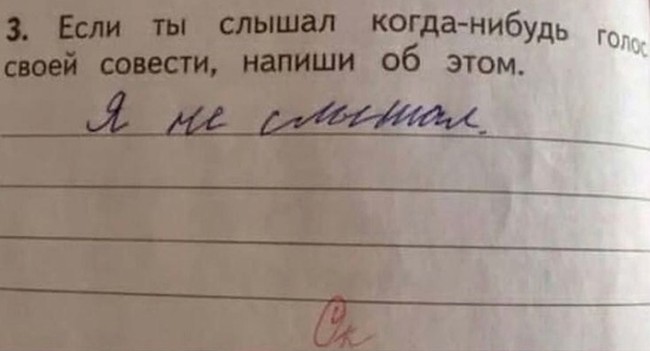 3. Если ты слышал когда-нибудь голос
своей совести, напиши об этом.
Я не слышал.
Ок